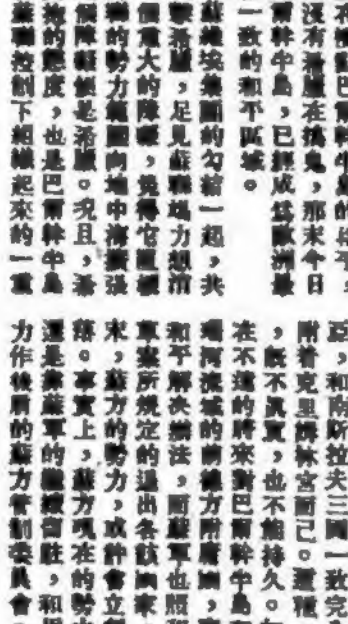 巴爾幹半島的
沒有希臘在搗鬼,那末今日
爾幹半島,已經成為歐洲最
一致的和平區域。
集團的勾結一起,共
希臘,足見蘇聯竭力想消
個重大的障礙,覺得它阻礙
的勢力範圍向地中海擴張
個障礙便是希臘。況且,希
的態度,也是巴爾幹半島
蘇聯控制下組織起來的一重
亞,和南斯拉夫三國一致完
附着克里姆林宮而已。這種
,既不眞實,也不能持久。如
在不遠的將來對巴爾幹半島
河流域的前敵方附庸國,
和平解決辦法,而蘇軍也照和
草案所規定的退出各該國家
末,蘇方的勢力,或許會立
落。事實上,蘇方現在的勢力
還是靠蘇軍的繼續留駐,和
力作後盾的蘇方管制委員會